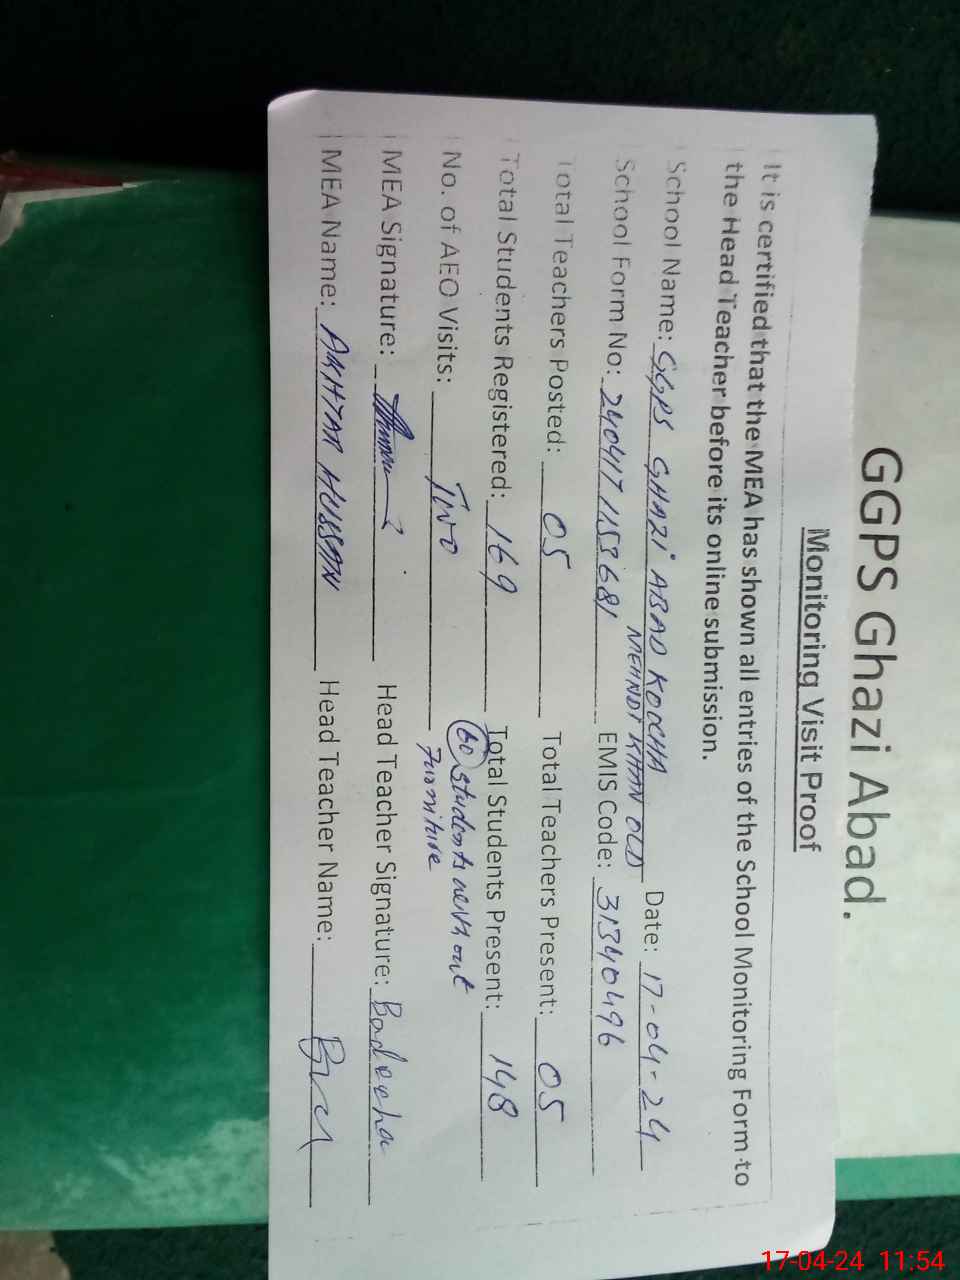 GGPS Ghazi Abad.
Monitoring Visit Proof
It is certified that the MEA has shown all entries of the School Monitoring Form to
the Head Teacher before its online submission.
School Name: GGPS GHAZI ABAD KOCHA MEHNDI KHAN OLD Date: 17-04-24
School Form No: EMIS Code: 31340496
Total Teachers Posted: 05 Total Teachers Present: 05
Total Students Registered: 169 Total Students Present: 148
60 students without
Furniture
No. of AEO Visits: Two
MEA Signature: Head Teacher Signature: Badeeha
MEA Name: AKHTAR HUSSAIN Head Teacher Name:
17-04-24 11:54